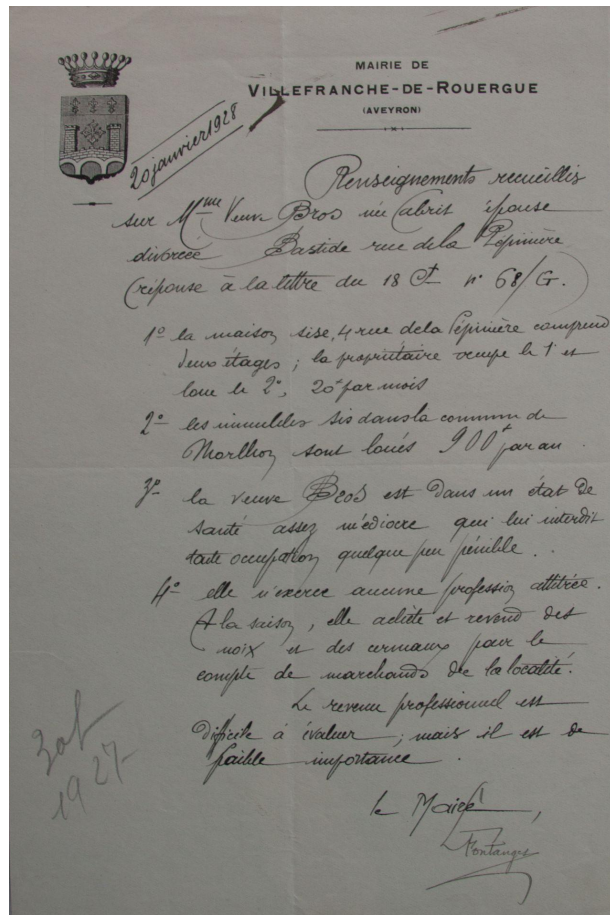 MAIRIE DE
VILLEFRANCHE-DE-ROUERGUE
(AVEYRON)
20 janvier 1928
Renseignements recueillis
sur Mme Veuve Bros née Cabrit épouse
divorcée Bastide rue de la Pépinière
(réponse à la lettre du 18 Ct n° 68/G.)
1° la maison sise, 4 rue de la Pépinière comprend
deux étages ; la propriétaire occupe le 1er et
loue le 2°, 20f par mois
2° les immeubles sis dans la commune de
Morlhon sont loués 900f par an.
3° la veuve Bros est dans un état de
santé assez médiocre qui lui interdit
toute occupation quelque peu pénible . .
4° elle n'exerce aucune profession attitrée.
A la saison, elle achète et revend des
noix et des cerneaux pour le
compte de marchands de la localité.
Le revenu professionnel est
difficile à évaluer ; mais il est de
faible importance.
le Maire,
1927